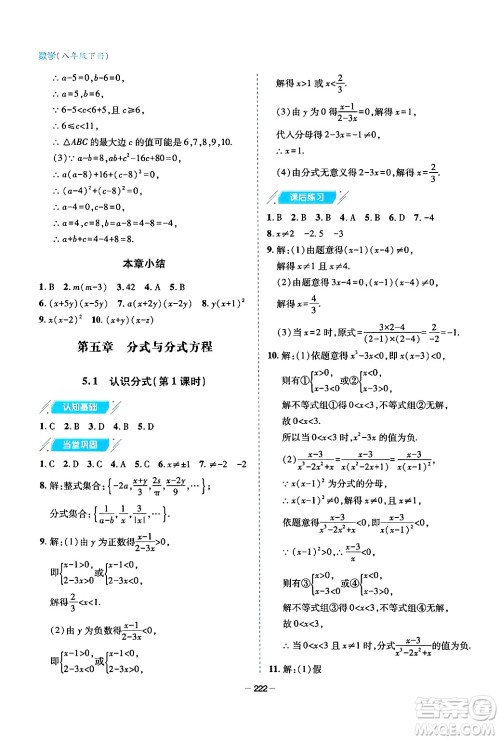 数学(八年级下册)
∴ a-5=0,b-6=0,
∴ a=5,b=6,
∴ 6-5<c<6+5,
∴ 6≤c<11,
∴ △ABC 的最大边 c 的值可能是 6,7,8,9,10.
(3)∵ a-b=8,ab+c²-16c+80=0,
∴ a(a-8)+16+(c-8)²=0,
∴ (a-4)²+(c-8)²=0,
∴ a-4=0,c-8=0,
∴ a=4,c=8,b=a-8=4-8=-4,
∴ a+b+c=4-4+8=8.
本章小结
1. B 2. m(m-3) 3. 42 4. D 5. B
6. (x+5y)(x-5y) 7. A 8. D
9. x(x-2)² 10. (x+y)²(x-y)²
第五章 分式与分式方程
5.1 认识分式(第 1 课时)
认知基础
1. C 2. A 3. C 4. D
当堂巩固
1. C 2. D 3. B 4. B 5. C 6. x≠±1 7. -2 -2
8. 解:整式集合:{-2a, (x+y)/3, (2x-y)/5, (x-2y)/π, …};
分式集合:{1/(a-b), a/x, 1/|x|, …}.
9. 解:(1)由 y 为正数得 (x-1)/(2-3x)>0,
即{x-1>0, 2-3x>0 或{x-1<0, 2-3x<0,
解得 2/3<x<1.
(2)由 y 为负数得 (x-1)/(2-3x)<0,
即{x-1>0, 2-3x<0 或{x-1<0, 2-3x>0,
解得 x>1 或 x<2/3.
(3)由 y=0 得 (x-1)/(2-3x)=0,
代人分母得 2-3x≠0,
∴ x=1.
(4)由分式无意义得 2-3x=0,解得 x=2/3.
课后练习
1. B 2. B 3. B 4. D 5. B 6. D 7. -4
8. x≠2 -2.5 -2
9. 解:(1)由题意得(x-1)(3x-4)≠0,
解得 x≠1 且 x≠4/3.
(2)由题意得(x-1)(3x-4)=0,
解得 x=1 或 x=4/3.
(3)当 x=2 时,原式=(3×2-4)/((2-1)×(2-4))=-1.
10. 解:(1)依题意得 (x-3)/(x³-2x²+x)>0,
即①{x>0, x-3>0 或②{x<0, x-3<0,
解不等式组①得 x>3,
解不等式组②得 x<0.
所以当 x>3 或 x<0 时,该分式的值为正.
(2)∵ (x-3)/(x³-2x²+x)=(x-3)/(x(x²-2x+1))=(x-3)/(x(x-1)²),
∵ x(x-1)² 为分式的分母,
∴ x(x-1)²≠0,
∴ x≠0 且 x≠1.
依题意得 (x-3)/(x³-2x²+x)<0,
即①{x>0, x-3<0 或②{x<0, x-3>0,
解不等式组①得 0<x<3,
不等式组②无解,
∴ 0<x<3,
∴ 当 0<x<3,且 x≠1 时,
该分式 (x-3)/(x³-2x²+x) 的值为负.
11. 解:(1)假
222